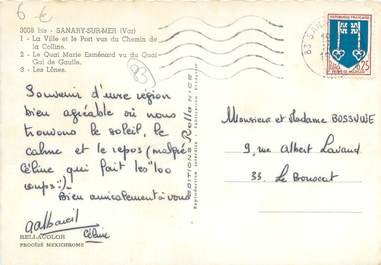 6 €
3008 bis - SANARY-SUR-MER (Var)
1 - La Ville et le Port vus du Chemin de
la Colline.
2 - Le Quai Marie Esménard vu du Quai
Gal de Gaulle.
3 - Les Lônes.
83
Souvenir d'une région
bien agréable où nous
trouvons le soleil, le
calme et le repos (malgré
Céline qui fait les "100
coups"!)-
Bien amicalement à vous
Céline
RELLACOLOR
PROCÉDÉ MEXICHROME
EDITIONS Rella NICE
83 SAN
REPUBLIQUE FRANÇAISE
0,25
Monsieur et Madame BOSSUWE
9, rue Albert Lavaud
33. Le Bouscat